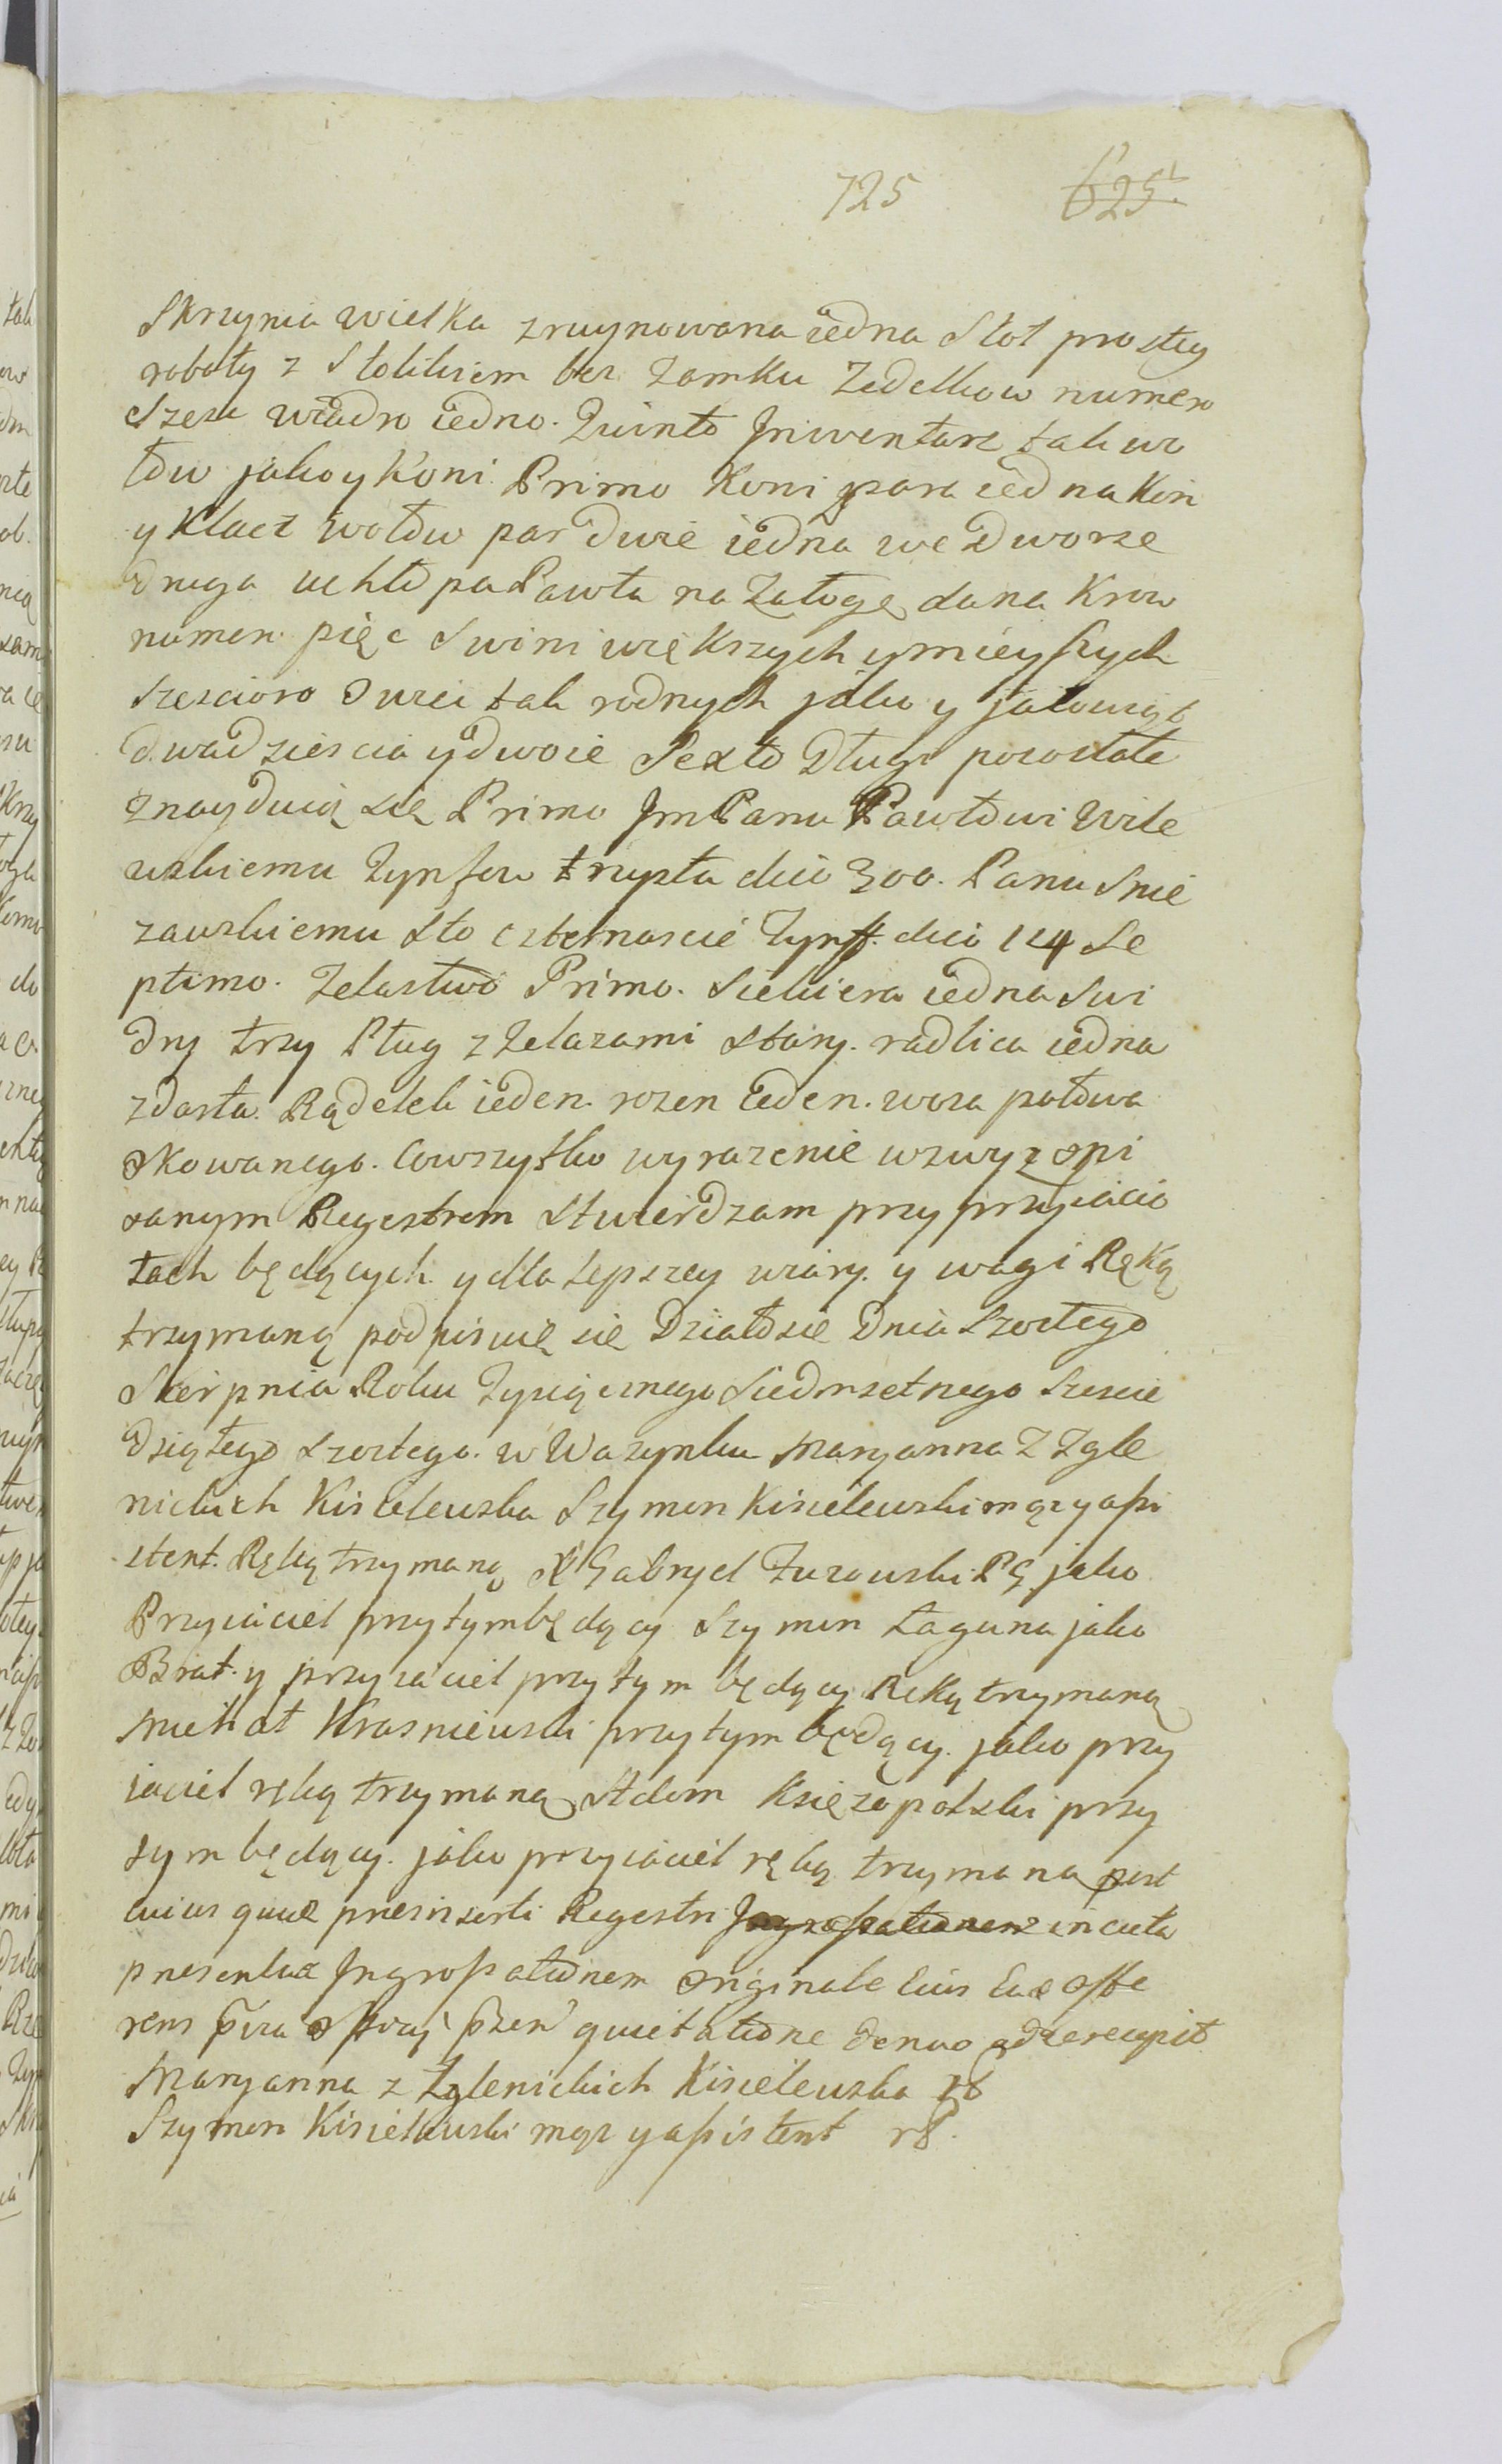 725 625.
Skrzynia wielka zruynowana iedna Stoł prostey
roboty z Stolikiem bez Zamku Zedelkow numero
Szesc wiadro iedno. Quinto Jnwentarz tak wo
łow jako y Koni. Primo Koni para iedna Koń
y Klacz wołow par dwie iedna we Dworze
druga u chłopa Pawła na Załogę dana Krow
numer. pięc Swini większych y mieyszych
Szescioro Owiec tak rodnych jako y jałowiąt
dwadziescia y dwoie Sexto Długi pozostałe
znayduią się Primo Jm Panu Pawłowi Wile
wskiemu Tynfow trzysta dico 300. Panu Snie
zawskiemu sto czternascie Tynff. dico 114 Se
ptimo. Zelastwo Primo. Siekiera iedna Swi
dry trzy Pług z Zelazami stary. radlica iedna
zdarta. Rądelek ieden. rozen ieden. woza połowa
okowanego. Co wszystko wyrazenie wzwyz opi
sanym Regestrem stwierdzam przy przyiacio
łach będących y dla lepszey wiary. y wagi Ręką
trzymaną podpisuię się Działo sie Dnia Szostego
Sierpnia Roku Tysiącznego Siedmsetnego Szescie
dziątego szostego. w Wazynku Maryanna Z Zgle
nickich Kisielewska Szymon Kisielewski mąz y assi
stent. Ręką trzymaną X Gabryel Zurowski PG jako
Przyiaciel przy tym będący Szymon Łaguna jako
Brat. y przyiaciel przy tym będący Ręką trzymaną
Michał Krasniewski przy tym będący. jako przy
jaciel ręką trzymaną Adam Księzopolski przy
tym będący. jako przyiaciel ręką trzymaną post
cuius quidę presinserti Regestri Jngrossationem in acta
presentia Jngrossationem originale Eius Eadę offe
rens quietatione denuo ad se recepit
Maryanna z Zglenickich Kisielewska
Szymon Kisielewski mąz y assistent